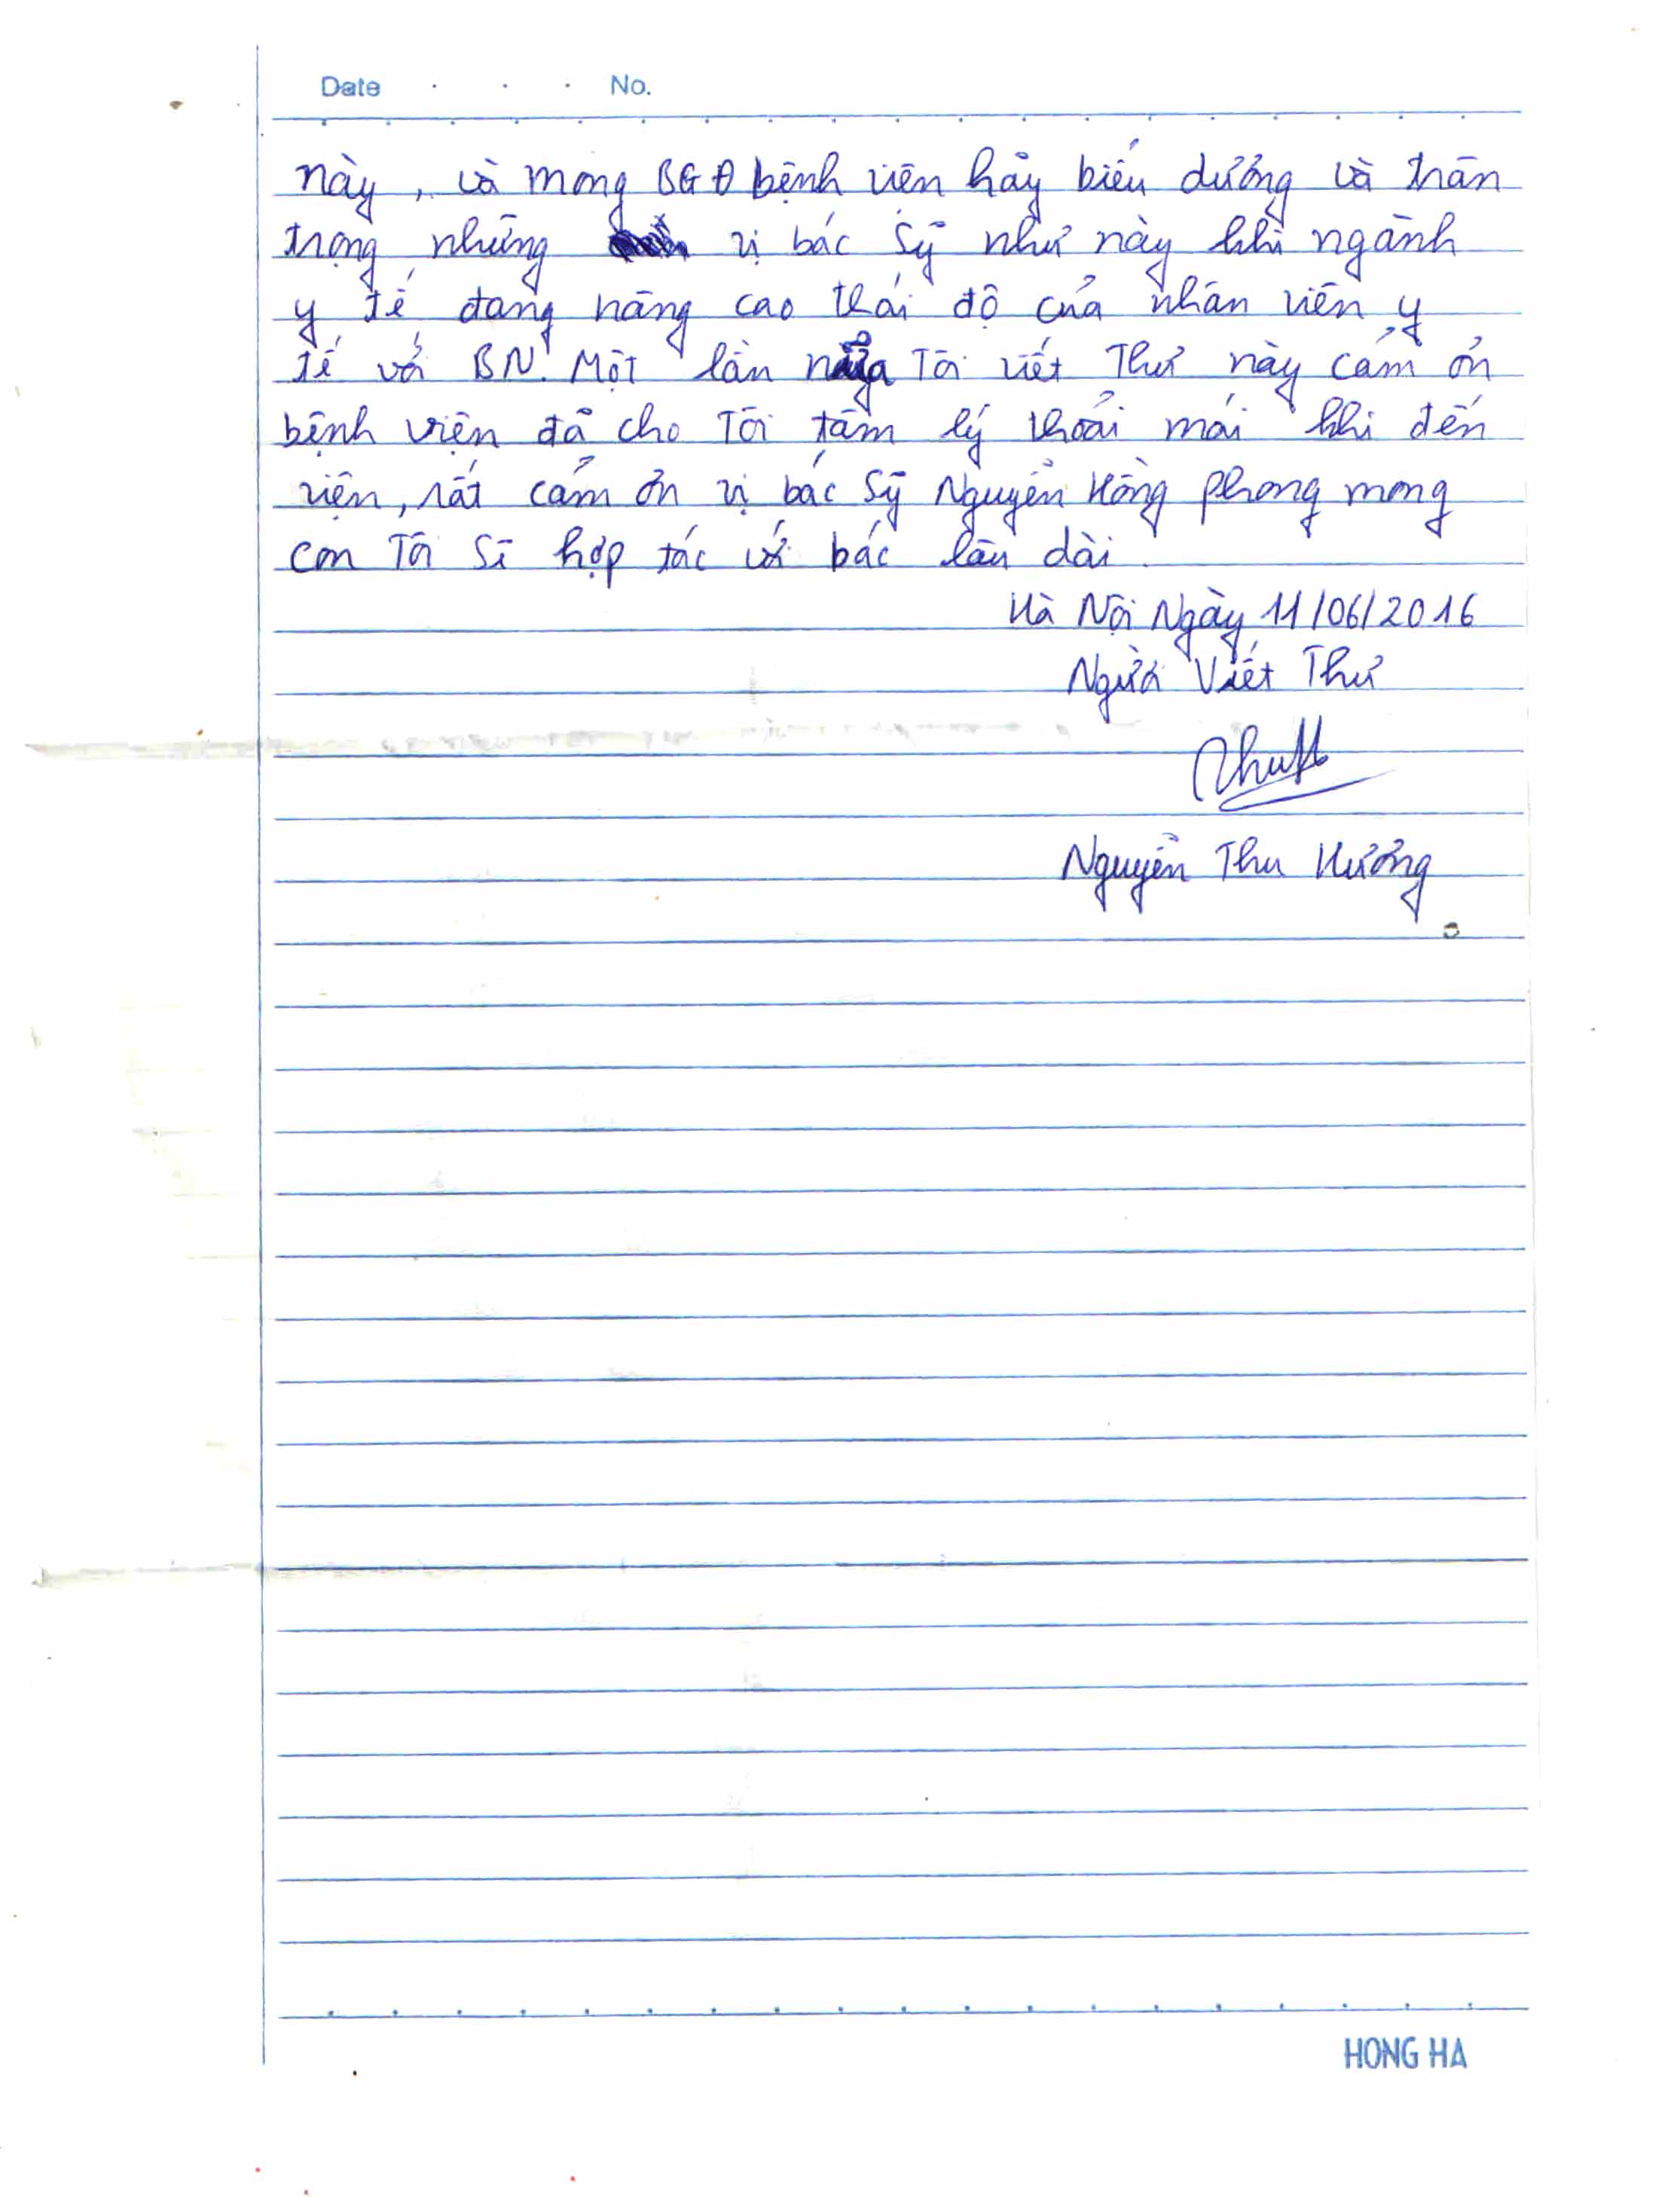 Date . . . No.
này, và mong BGĐ bệnh viện hãy biểu dương và trân
trọng những vị bác sỹ như này khi ngành
y tế đang nâng cao thái độ của nhân viên y
tế với BN. Một lần nữa Tôi viết Thư này cảm ơn
bệnh viện đã cho Tôi tâm lý thoải mái khi đến
viện, rất cảm ơn vị bác sỹ Nguyễn Hồng phong mong
con Tôi sẽ hợp tác với bác lâu dài.
Hà Nội Ngày 11/06/2016
Người Viết Thư
Nguyễn Thu Hương
HONG HA